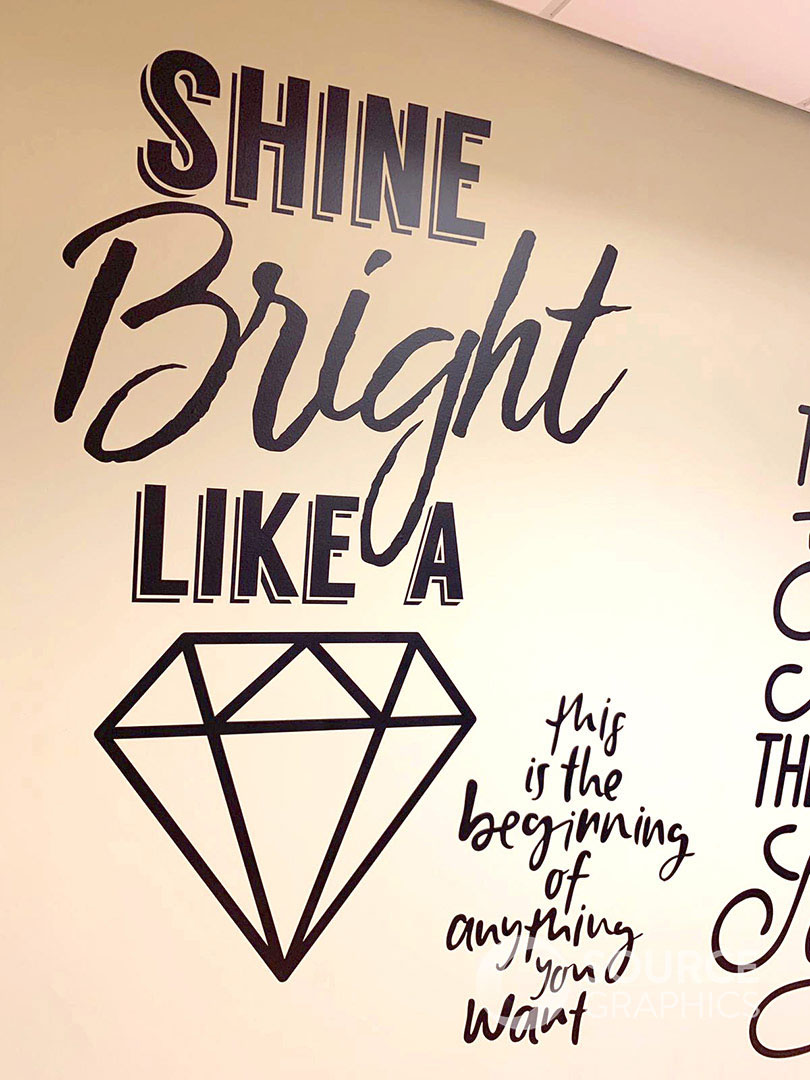 SHINE
Bright
LIKE A
this
is the
beginning
of
anything
you
want
TH
SOURCE
GRAPHICS